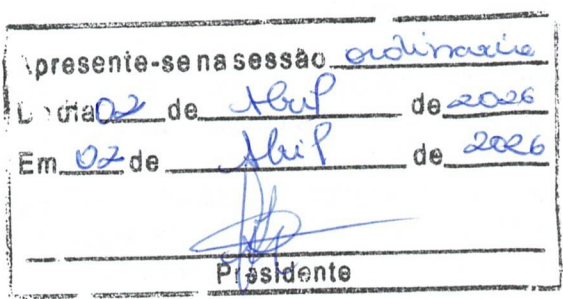 Apresente-se na sessão ordinaria
Do dia 02 de Abril de 2026
Em 02 de Abril de 2026
Presidente